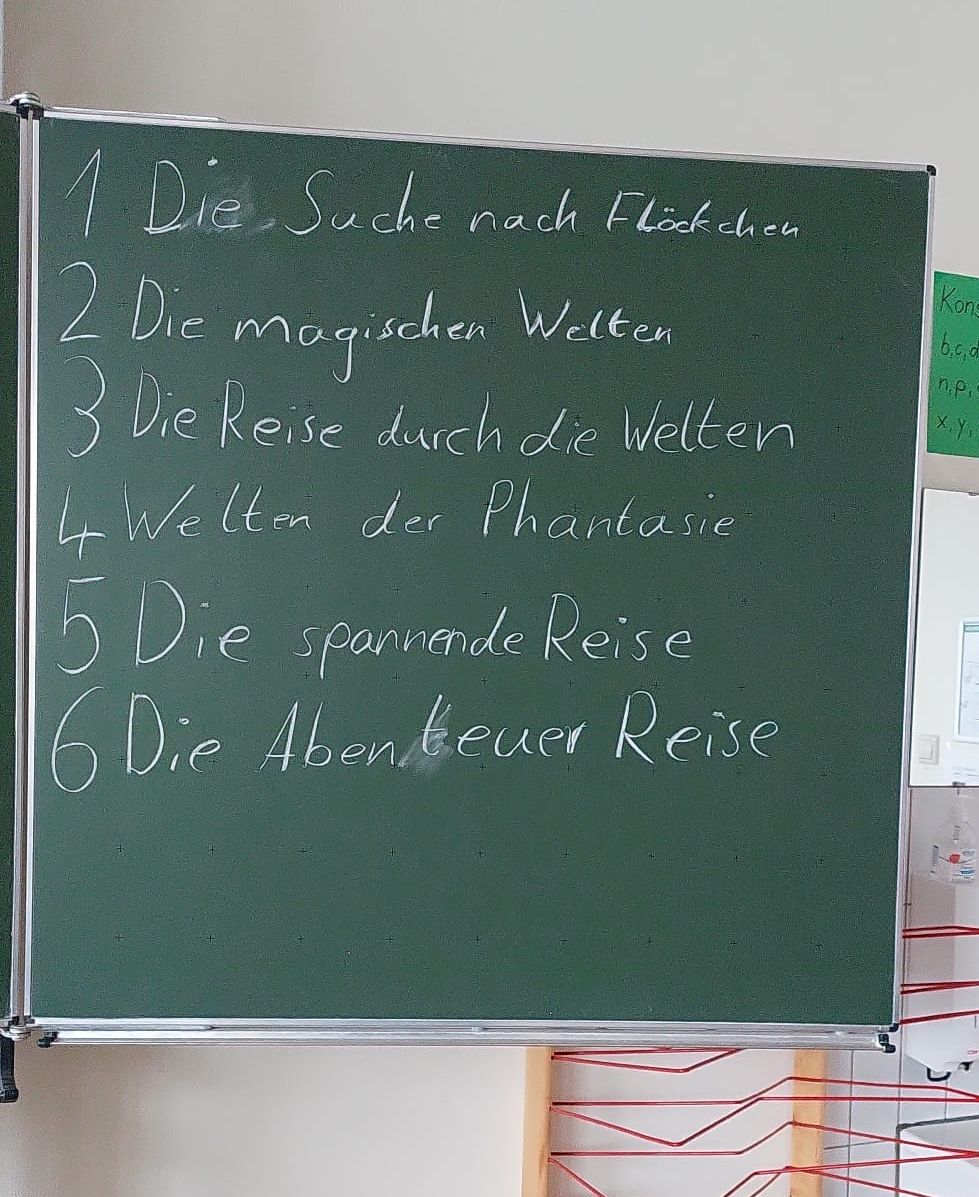 1 Die Suche nach Flöckchen
2 Die magischen Welten
3 Die Reise durch die Welten
4 Welten der Phantasie
5 Die spannende Reise
6 Die Abenteuer Reise
Kons
b,c,d
n,p,
x,y,